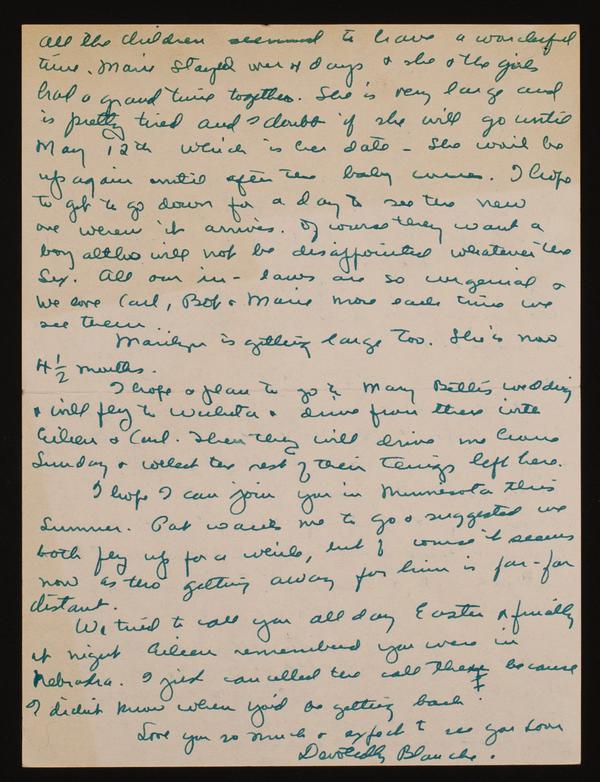 all the children seemed to have a wonderful
time. Marie stayed over 4 days & she & the girls
had a grand time together. She is very large and
is pretty tired and I doubt if she will go until
May 12th which is her date - She won't be
up again until after the baby comes. I hope
to get to go down for a day to see the new
one when it arrives. Of course they want a
boy altho will not be disappointed whatever the
Sex. All our in-laws are so congenial &
We love Carl, Bob & Marie more each time we
see them.
Marilyn is getting large too. She's now
4 1/2 months.
I hope & plan to go to Mary Bett's wedding
& will fly to Wichita & drive from there with
Eileen & Carl. Then they will drive me home
Sunday & collect the rest of their things left here.
I hope I can join you in Minnesota this
Summer. Pat wants me to go & suggested we
both fly up for a while, but of course it seems
now as tho getting away for him is far-far
distant.
We tried to call you all day Easter & finally
at night Eileen remembered you were in
Nebraska. I just cancelled the call there because
I didn't know when you'd be getting back.
Love you so much & expect to see you soon
Devotedly Blanche.